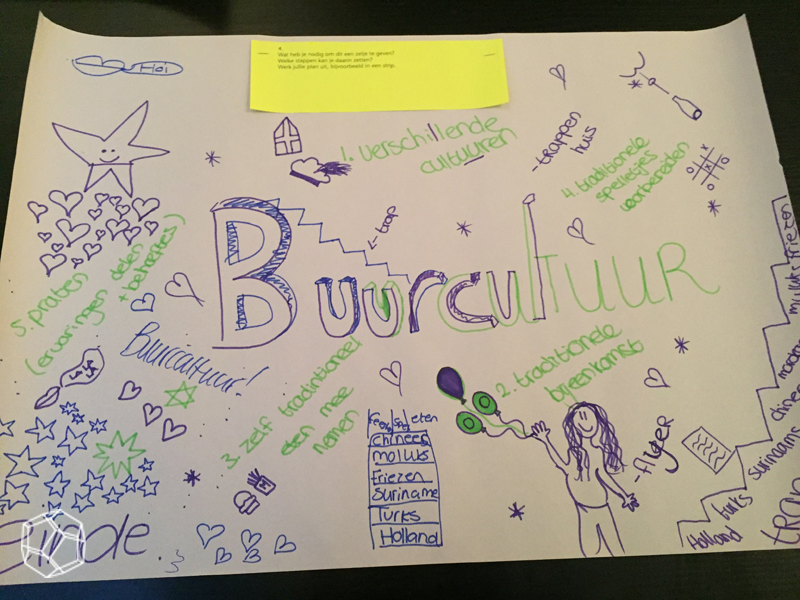 4.
Wat heb je nodig om dit een zetje te geven?
Welke stappen kan je daarin zetten?
Werk jullie plan uit, bijvoorbeeld in een strip.
1. verschillende
cultuuren
-trappen
huis
4. traditionele
spelletjes
voorbereiden
← trap
BuurculTUUR
5. praten
(ervaringen delen
+ behoeftes)
Buurcultuur!
LA LA
LA
3. zelf traditintioneel
eten mee
nemen
2. traditionele
bijeenkomst
-flyer
eten
chinees
moluks
Friezen
Suriname
Turks
Holland
Holland
turks
Surinaams
chinees
moluks
friezen
trap